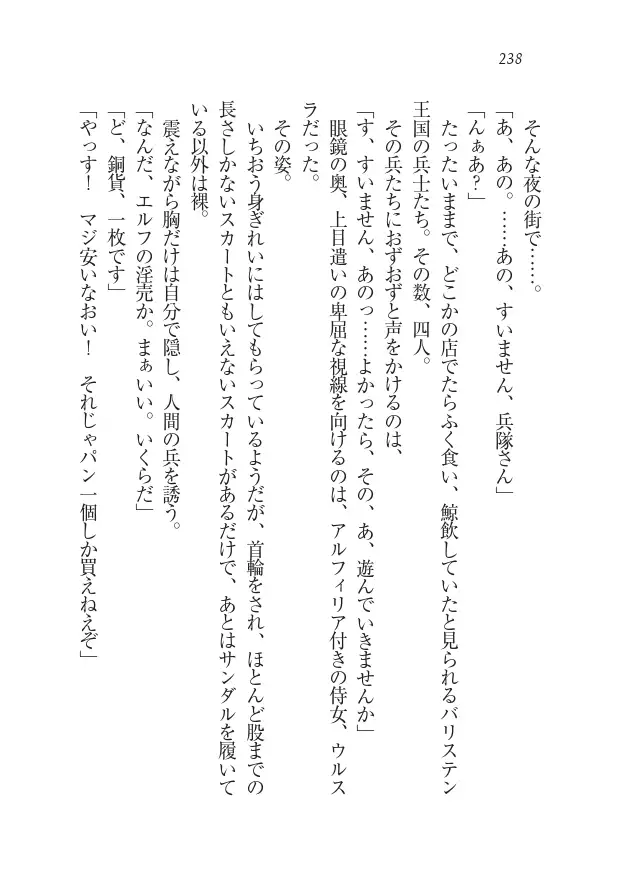 238
そんな夜の街で……。
「あ、あの。……あの、すいません、兵隊さん」
「んぁあ？」
たったいままで、どこかの店でたらふく食い、鯨飲していたと見られるバリステン
王国の兵士たち。その数、四人。
その兵たちにおずおずと声をかけるのは、
「す、すいません、あのっ……よかったら、その、あ、遊んでいきませんか」
眼鏡の奥、上目遣いの卑屈な視線を向けるのは、アルフィリア付きの侍女、ウルス
ラだった。
その姿。
いちおう身ぎれいにはしてもらっているようだが、首輪をされ、ほとんど股までの
長さしかないスカートともいえないスカートがあるだけで、あとはサンダルを履いて
いる以外は裸。
震えながら胸だけは自分で隠し、人間の兵を誘う。
「なんだ、エルフの淫売か。まぁいい。いくらだ」
「ど、銅貨、一枚です」
「やっす！　マジ安いなおい！　それじゃパン一個しか買えねえぞ」